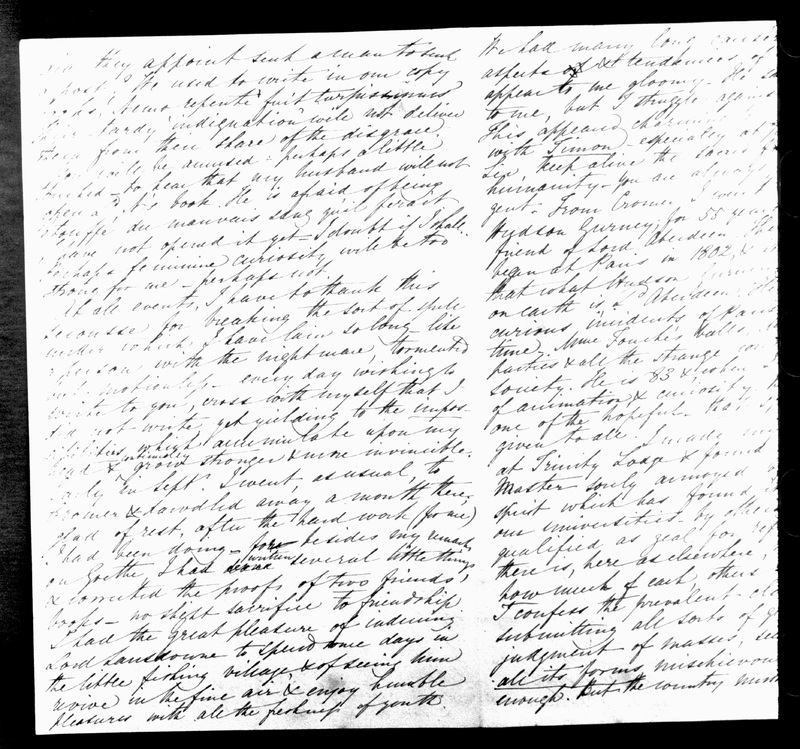 they appoint such a man to such
a post? We used to write in our copy
nemo repente fuit turpissimus
tardy indignation will not deliver
them from their share of the disgrace.
will be amused: perhaps a little
to hear that my husband will not
open book. He is afraid of being
étouffé du mauvais sang qu'il ferait
I have not opened it yet – I doubt if I shall.
Perhaps feminine curiosity will be too
strong for me – perhaps not.
At all events, I have to thank this
secousse for breaking the sort of spell
under which I have lain so long, like
a person with the nightmare, tormented
and motionless – every day wishing to
write to you, cross with myself that I
did not write, yet yielding to the impos-
sibilities which accumulate upon my
head & grow stronger & more invincible.
Early in Septr. I went, as usual, to
Cromer & dawdled away a month there,
glad of rest, after the hard work (for me)
I had been doing – for besides my remarks
on Goethe I had written several little things
& corrected the proofs of two friends'
books – no slight sacrifice to friendship
I had the great pleasure of inducing
Lord Lansdowne to spend some days in
the little fishing village, & of seeing him
revive in the fine air & enjoy humble
pleasures with all the freshness of youth.
We had many long
aspects & tendances of
appear to me gloomy. He
to me, but I struggle against
This appeared charming
with Timon – especially at
sex, keep alive the sacred
humanity – you are always
gent. From Cromer I went
Hudson Gurney, for 55 years
friend of Lord Aberdeen. The
began at Paris in 1802, &
that what Hudson Gurney
on earth is a Aberdeen. He
curious incidents of Paris
time, Mme Fouché's balls,
parties & all the strange
society. He is 83 & when
of animation & curiosity.
one of the hopeful. That
given to all. I made
at Trinity Lodge & found
Master sorely annoyed
spirit which has found
our universities. By others
qualified, as zeal for
there is, here as elsewhere
how much of each others
I confess the prevalent
submitting all sorts of
judgment of masses,
all its forms, mischievous
enough. But the country must